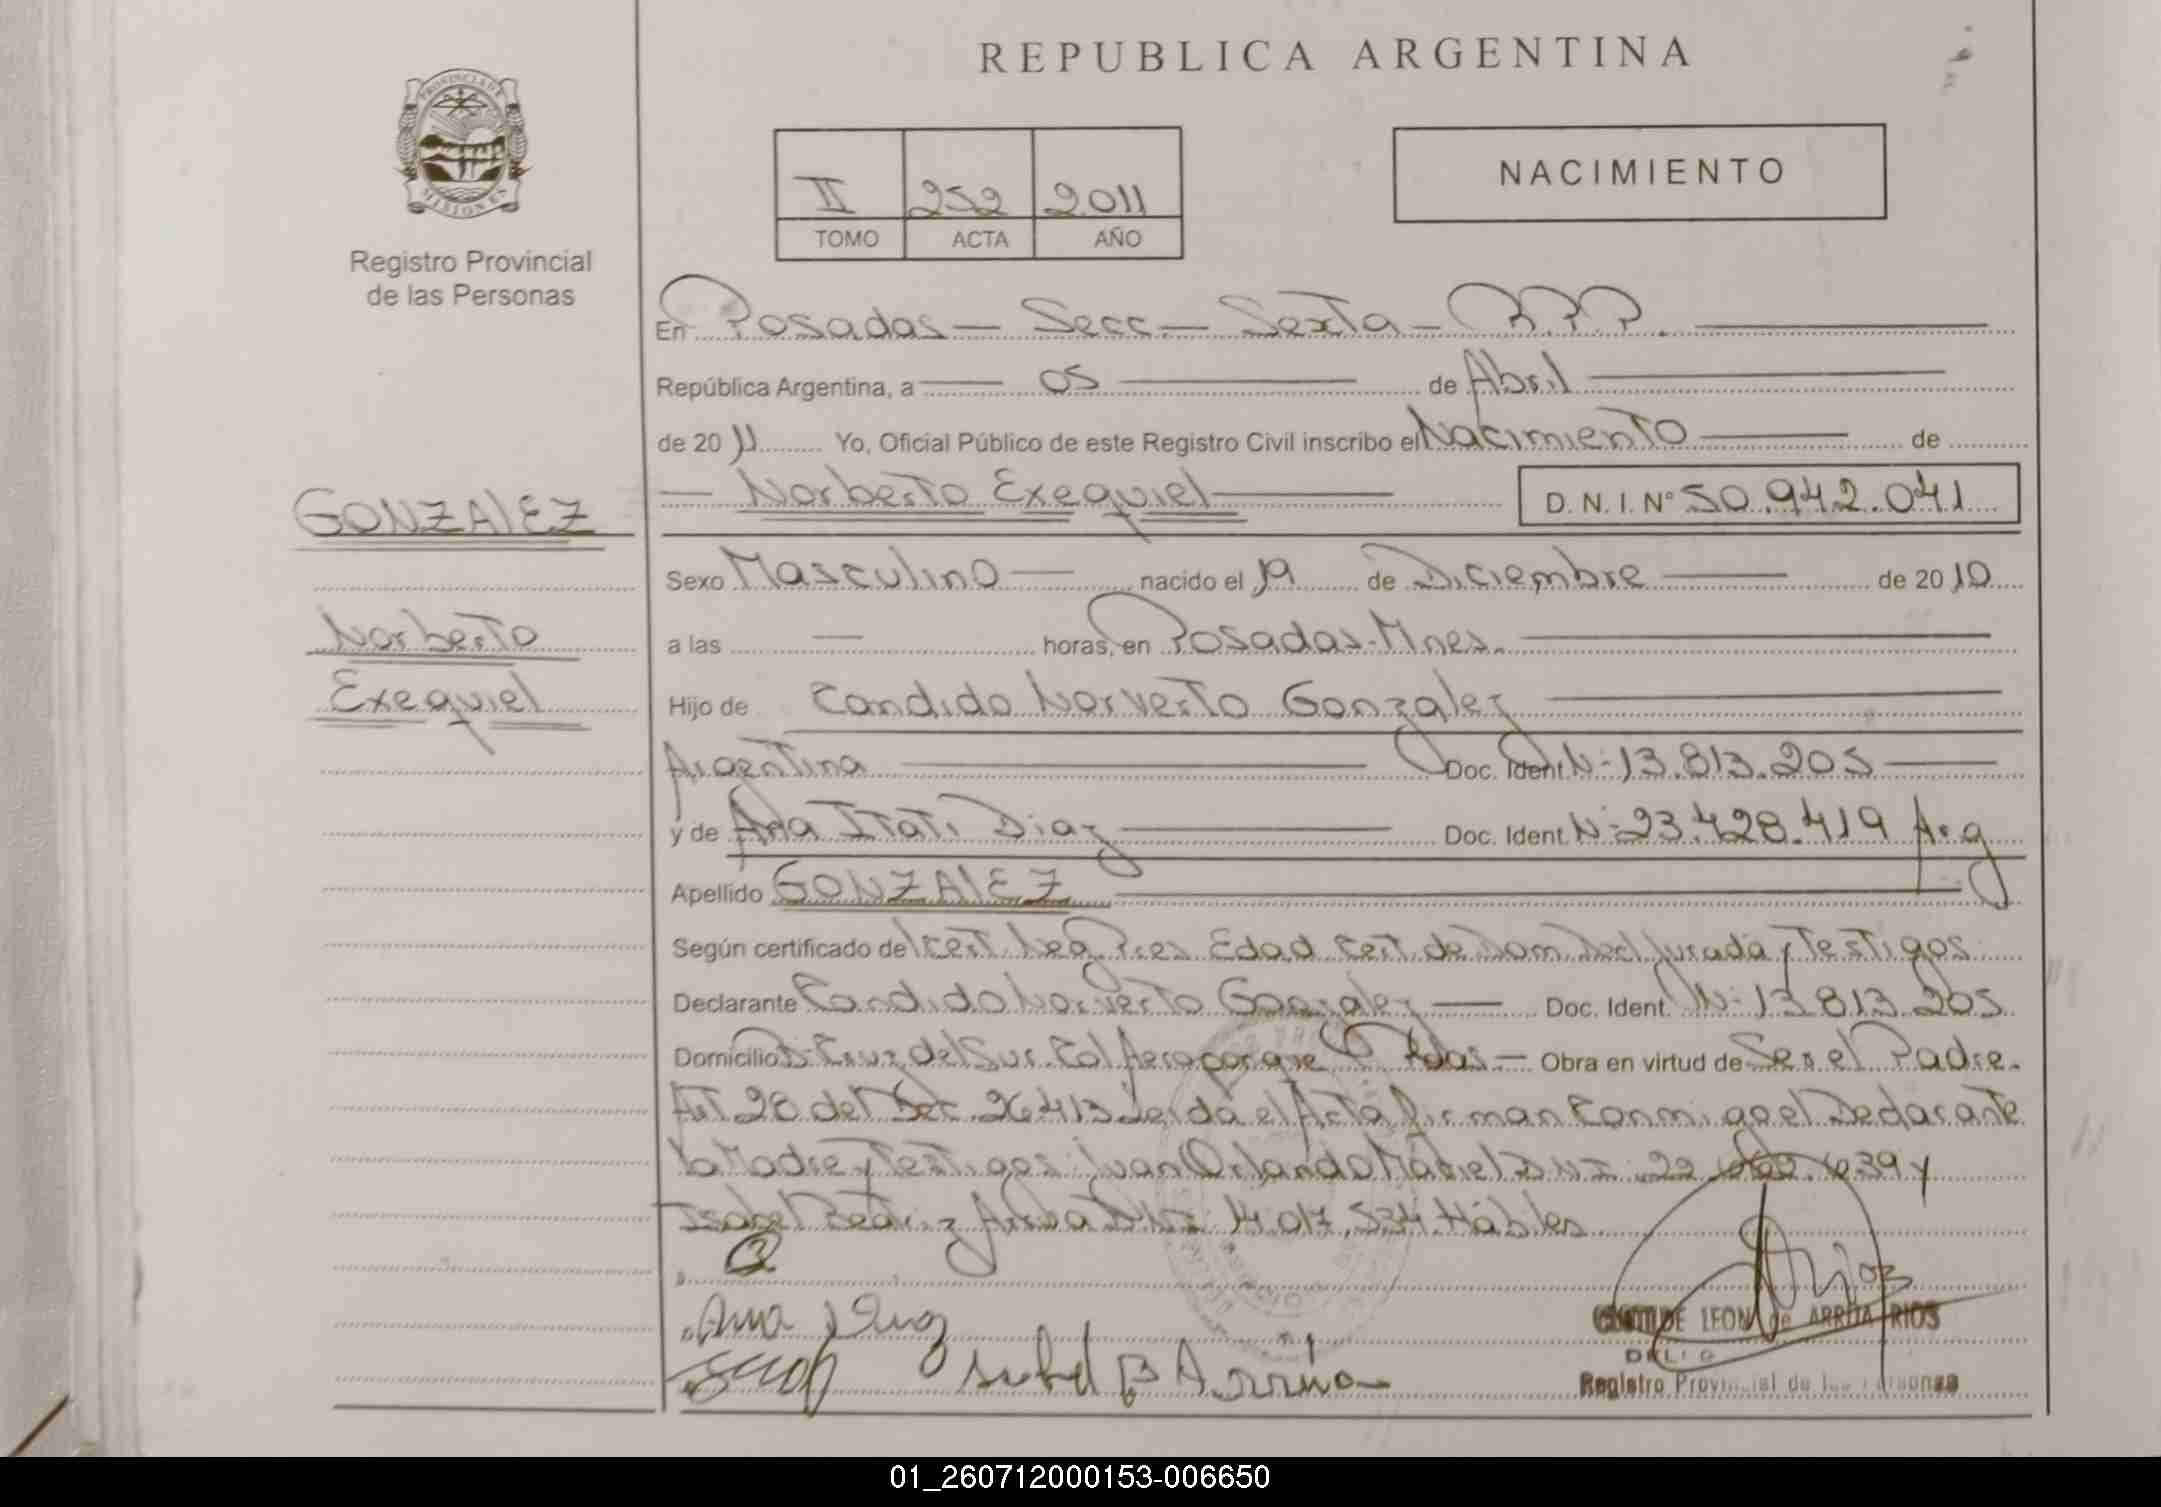 REPUBLICA ARGENTINA
PROVINCIA DE
MISIONES
Registro Provincial
de las Personas
NACIMIENTO
II 252 2011
TOMO ACTA AÑO
En Posadas - Secc - Sexta - R.P.P.
República Argentina, a 05 de Abril
de 2011 Yo, Oficial Público de este Registro Civil inscribo el Nacimiento de
GONZALEZ
Norberto Exequiel D.N.I. Nº 50.942.041
Sexo Masculino nacido el 19 de Diciembre de 2010
Norberto
a las — horas, en Posadas-Mnes.
Exequiel
Hijo de Candido Norverto Gonzalez
Argentina Doc. Ident. N: 13.813.205
y de Ana Itati Diaz Doc. Ident. N: 23.428.419 Arg
Apellido GONZALEZ
Según certificado de Cert. Neg. Pres Edad Cert. de Dom. Decl Jurada y Testigos
Declarante Candido Norverto Gonzalez Doc. Ident. N: 13.813.205
Domicilio Cruz del Sur. Col Aeroparque Pdas - Obra en virtud de Ser el Padre.
Art 28 del 26413 Leida el Acta firman Conmigo el Declarante
la Madre y Testigos: Juan Orlando Maciel 22 039 y
14.017.534 Hábiles
Ana Diaz
Isabel B Arrua
DE LEON de ARRUA RIOS
Registro Provincial de las Personas
01_260712000153-006650